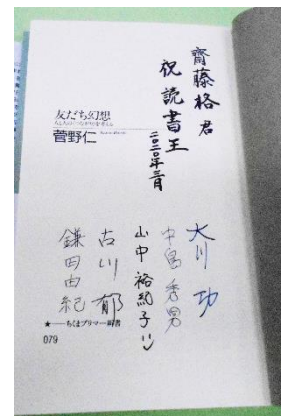 齋藤格君
祝読書王
二〇二〇年三月
友だち幻想
人と人の〈つながり〉を考える
菅野仁
大川功
中島秀男
山中裕紀子
古川郁
鎌田由紀
★──ちくまプリマー新書
079